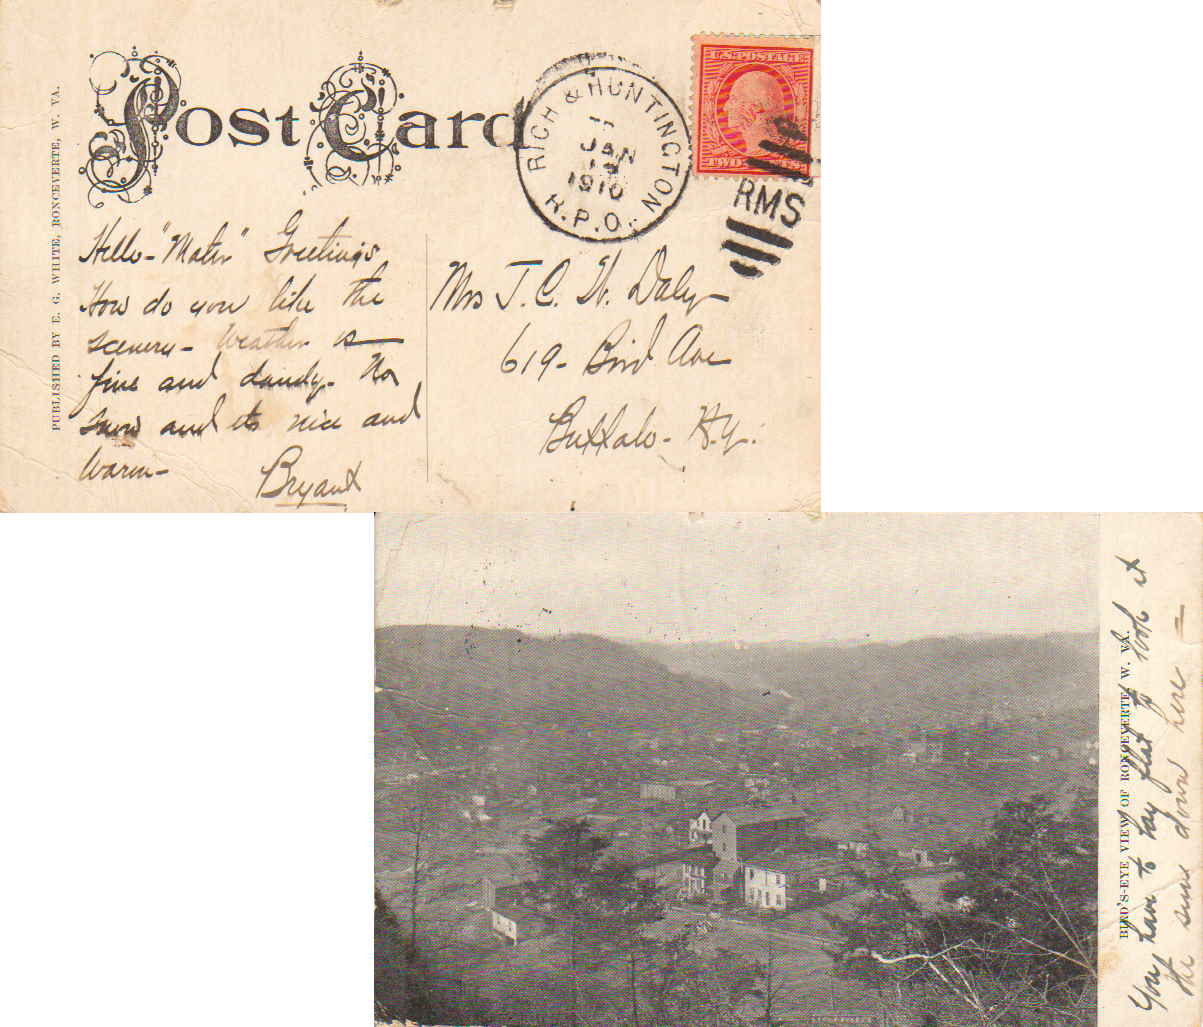 Post Card
PUBLISHED BY E. G. WHITE, RONCEVERTE, W. VA.
RICH & HUNTINGTON
JAN
1910
R.P.O.
U.S. POSTAGE
TWO CENTS
RMS
Hello - "Mater" Greetings
How do you like the
scenery - Weather is
fine and dandy. No
snow and its nice and
warm -
Bryant
Mrs J. C. W. Daly
619 - Bird Ave
Buffalo - N.y.
BIRD'S-EYE VIEW OF RONCEVERTE, W. VA.
You have to lay flat to look at
the sun down here -